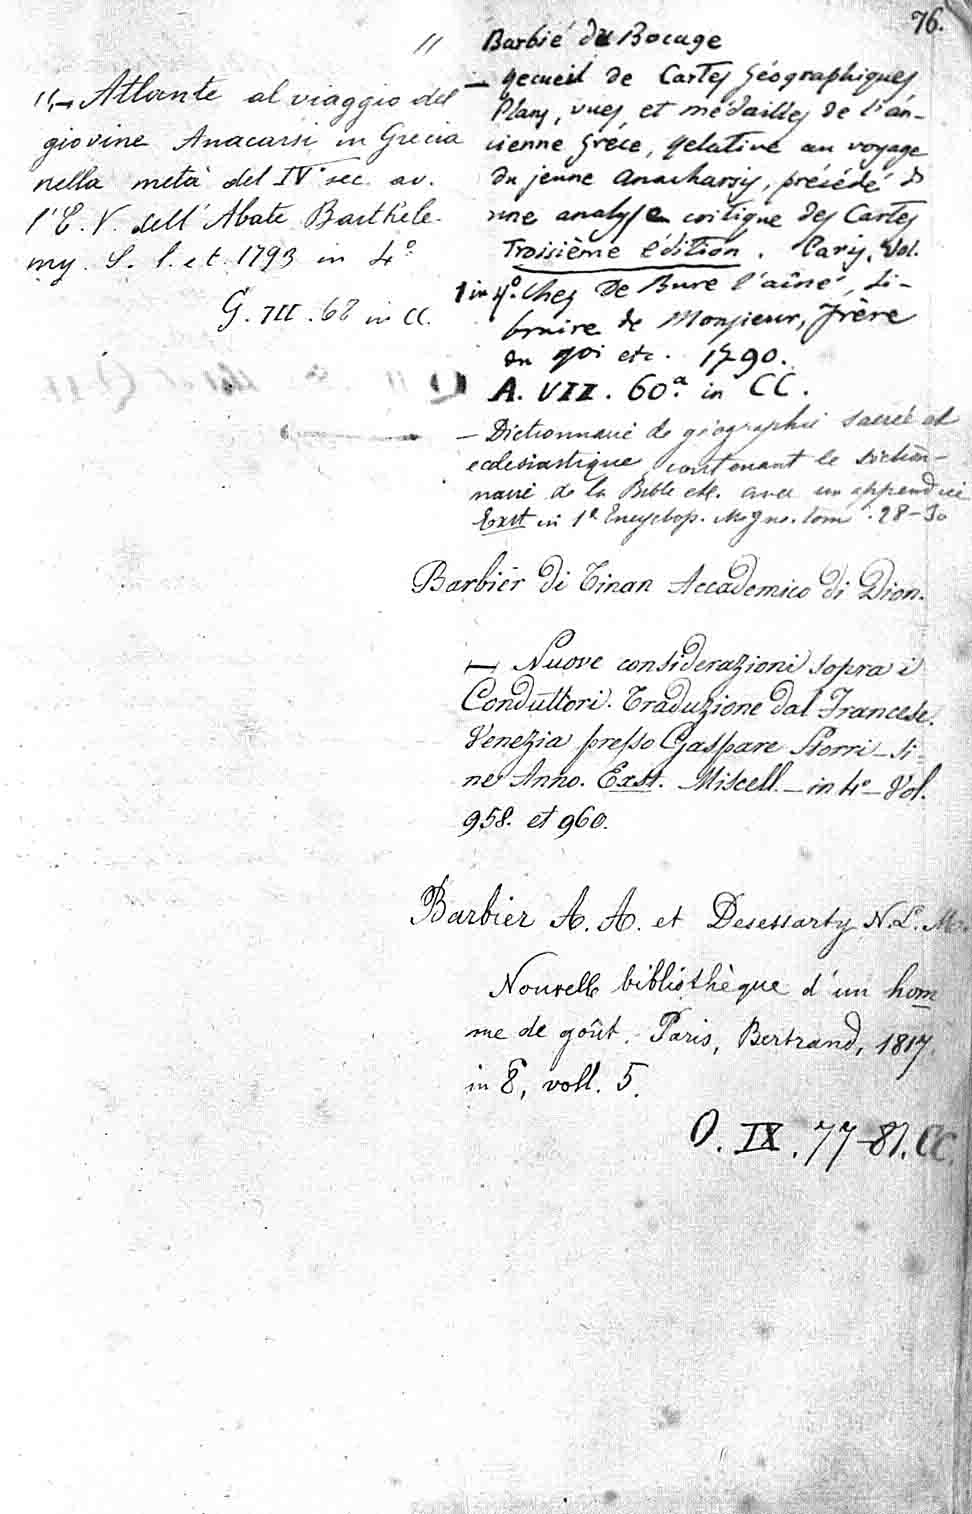 76.
" Barbié du Bocage
— Recueil de Cartes Géographiques,
Plans, vues, et médailles de l'an-
cienne Grèce, relative au voyage
du jeune Anacharsis, précédé d'
une analyse critique des Cartes
Troisième édition. Paris, Vol.
1 in 4º. Chez De Bure l'aîné, Li-
braire de Monsieur, Frère
du roi etc. 1790.
A. VII. 60ª. in CC.
— Dictionnaire de géographie sacrée et
ecclesiastique contenant le diction-
naire de la Bible etc. avec un appendice
Exst in 1ª Encyclop. Migne. tom. 28-30
" — Atlante al viaggio del
giovine Anacarsi in Grecia
nella metà del IVº sec. av.
l'E. V. dell'Abate Barthéle-
my. S. l. et. 1793 in 4º
G. III. 68 in CC.
Barbièr di Tinan Accademico di Dion.
— Nuove considerazioni sopra i
Conduttori. Traduzione dal Francese.
Venezia presso Gaspare Storti — Si-
ne Anno. Exst. Miscell. — in 4º — Vol.
958. et 960.
Barbier A. A. et Desessarts N. L. M.
Nouvelle bibliothèque d'un hom
me de goût. Paris, Bertrand, 1817
in 8, voll. 5.
O. IX. 77-81. CC.